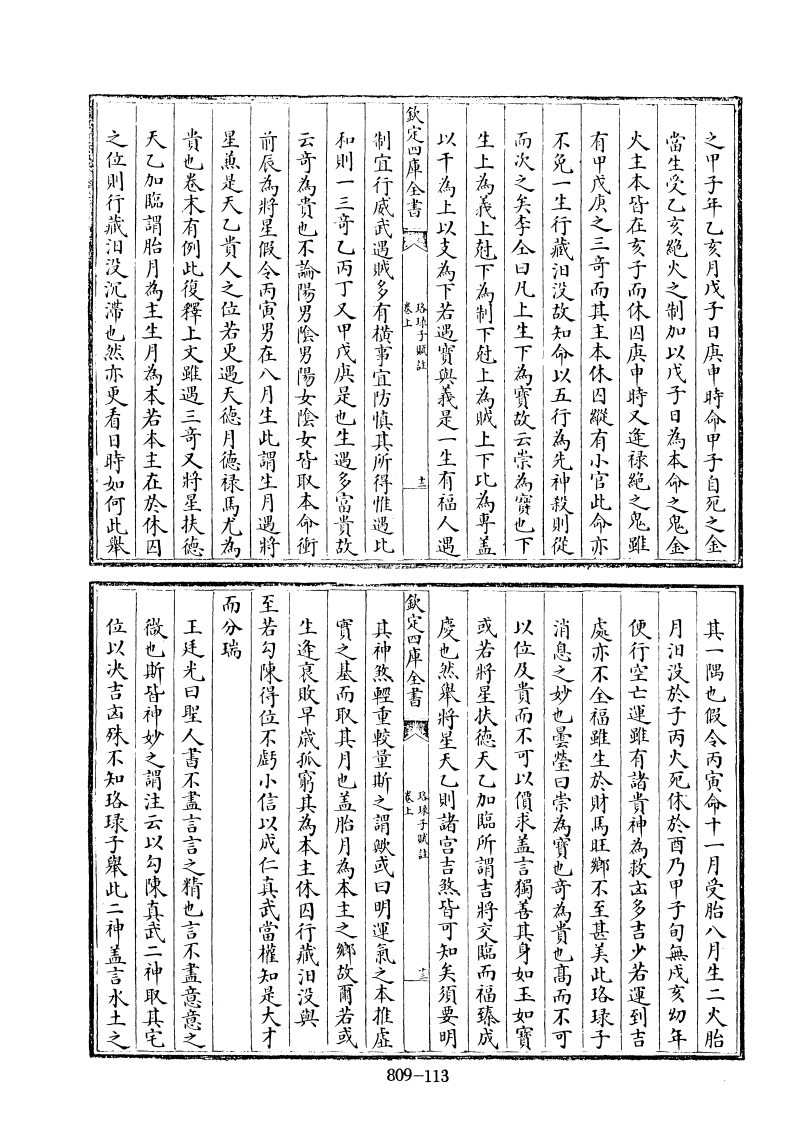 之甲子年乙亥月戊子日庚申時命甲子自死之金
當生受乙亥絶火之制加以戊子日為本命之鬼金
火主本皆在亥子而休囚庚申時又逢禄絶之鬼雖
有甲戊庚之三奇而其主本休囚縱有小官此命亦
不免一生行藏汨没故知命以五行為先神殺則從
而次之矣李仝曰凡上生下為寳故云崇為寳也下
生上為義上尅下為制下尅上為賊上下比為專盖
以干為上以支為下若遇寳與義是一生有福人遇
欽定四庫全書
珞琭子賦註
卷上
十二
制宜行威武遇賊多有橫事宜防慎其所得惟遇比
和則一三奇乙丙丁又甲戊庚是也生遇多富貴故
云奇為貴也不論陽男陰男陽女陰女皆取本命衝
前辰為將星假令丙寅男在八月生此謂生月遇將
星兼是天乙貴人之位若更遇天德月德禄馬尤為
貴也卷末有例此復釋上文雖遇三奇又將星扶德
天乙加臨謂胎月為主生月為本若本主在於休囚
之位則行藏汨没沉滯也然亦更看日時如何此舉
其一隅也假令丙寅命十一月受胎八月生二火胎
月汨没於子丙火死休於酉乃甲子旬無戌亥幼年
便行空亡運雖有諸貴神為救凶多吉少若運到吉
處亦不全福雖生於財馬旺鄉不至甚美此珞琭子
消息之妙也曇瑩曰崇為寳也奇為貴也髙而不可
以位及貴而不可以價求盖言獨善其身如玉如寳
或若將星扶德天乙加臨所謂吉將交臨而福臻成
慶也然舉將星天乙則諸宫吉煞皆可知矣須要明
欽定四庫全書
珞琭子賦註
卷上
十三
其神煞輕重較量斯之謂歟或曰明運氣之本推虚
實之基而取其月也盖胎月為本主之鄉故爾若或
生逢衰敗早歳孤窮其為本主休囚行藏汨没與
至若勾陳得位不虧小信以成仁真武當權知是大才
而分瑞
王廷光曰聖人書不盡言言之精也言不盡意意之
微也斯皆神妙之謂注云以勾陳真武二神取其宅
位以决吉凶殊不知珞琭子舉此二神盖言水土之
809-113